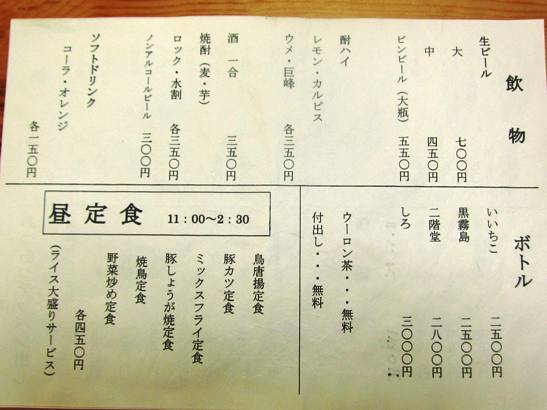 飲物
生ビール
大 七〇〇円
中 四五〇円
ビンビール（大瓶） 五五〇円
酎ハイ
レモン・カルピス
ウメ・巨峰 各三五〇円
酒 一合 三五〇円
焼酎（麦・芋）
ロック・水割 各三五〇円
ノンアルコールビール 三〇〇円
ソフトドリンク
コーラ・オレンジ
各一五〇円
ボトル
いいちこ 二五〇〇円
黒霧島 二五〇〇円
二階堂 二八〇〇円
しろ 三〇〇〇円
ウーロン茶・・・無料
付出し・・・無料
昼定食 11：00～2：30
鳥唐揚定食
豚カツ定食
ミックスフライ定食
豚しょうが焼定食
焼鳥定食
野菜炒め定食
各四五〇円
（ライス大盛りサービス）